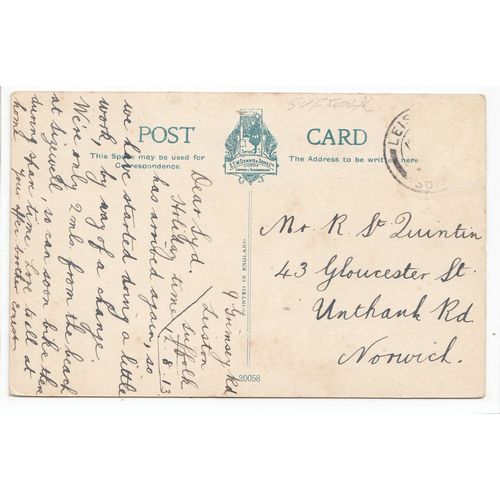 SUFFOLK
POST CARD
This Space may be used for
Correspondence.
The Address to be written here
E.W. DENNIS & SONS LTD
LONDON & SCARBOROUGH
PRINTED IN ENGLAND
20058
LEIS
SUF
9 Grimsey Rd
Leiston
Suffolk
12.8.13
Dear Syd.
Holiday time
has arrived again, so
we have started doing a little
work, by way of a change.
We're only 2 mls. from the beach
at Sizwell, so can soon bike there
during spare time. Love to all at
home
Your affec brother
Mr. R. St Quintin
43 Gloucester St.
Unthank Rd
Norwich.